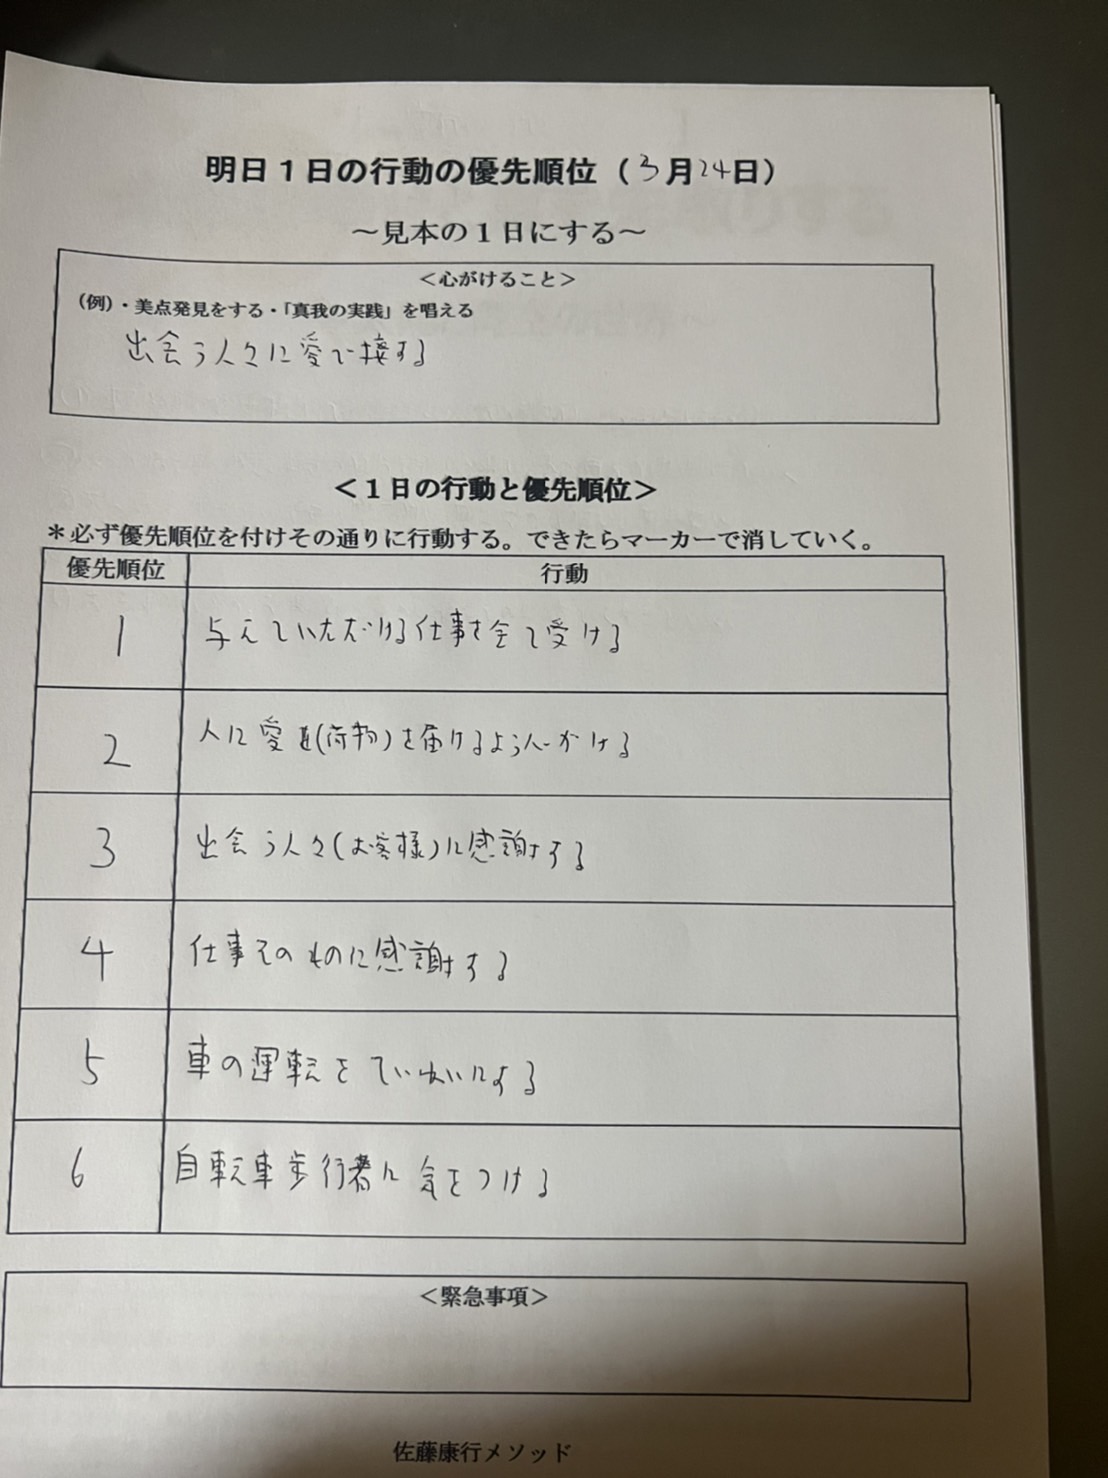 明日1日の行動の優先順位（3月24日）
～見本の1日にする～
＜心がけること＞
（例）・美点発見をする・「真我の実践」を唱える
出会う人々に愛で接する
＜1日の行動と優先順位＞
＊必ず優先順位を付けその通りに行動する。できたらマーカーで消していく。
優先順位 行動
1 与えていただける仕事を全て受ける
2 人に愛を(荷物)を届けるよう心がける
3 出会う人々(お客様)に感謝する
4 仕事そのものに感謝する
5 車の運転をていねいにする
6 自転車歩行者に気をつける
＜緊急事項＞
佐藤康行メソッド